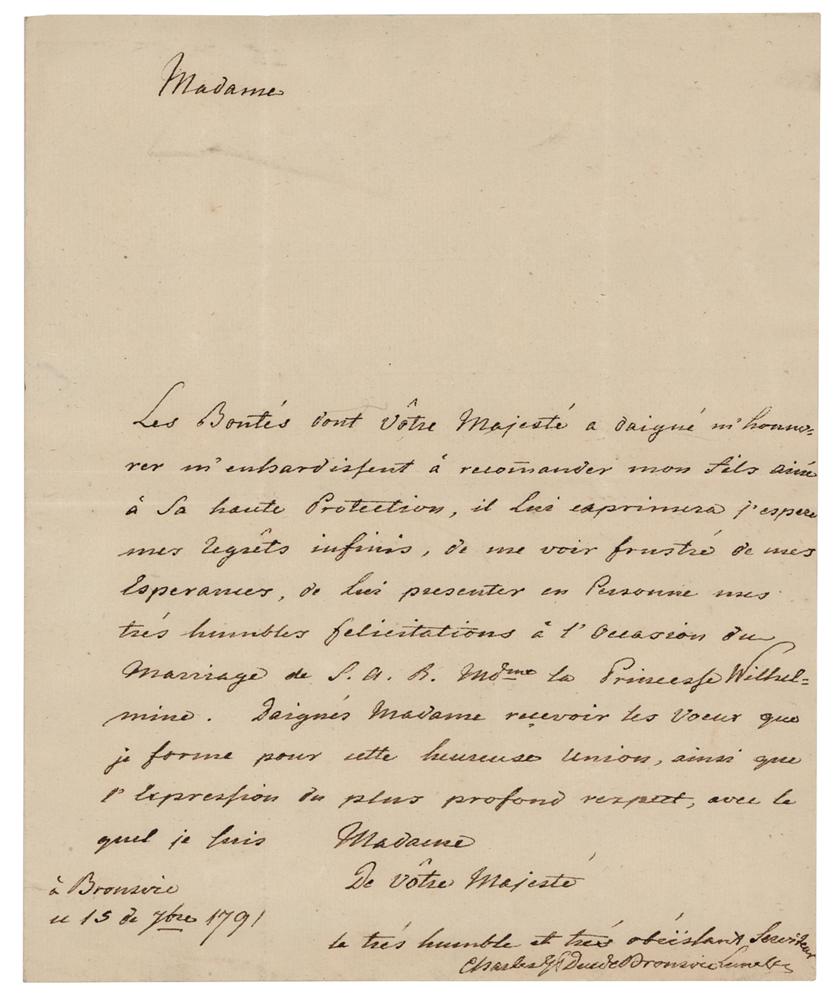 Madame
Les Bontés dont Vôtre Majesté a daigné m'honno=
rer m'enhardissent à recomander mon fils ainé
à Sa haute Protection, il Lui exprimera j'espere
mes regrêts infinis, de me voir frustré de mes
Esperances, de lui presenter en Personne mes
trés humbles felicitations à l'Occasion du
Marriage de S. A. R. Mdme la Princesse Wilhel=
mine. Daignés Madame reçevoir les Voeux que
je forme pour cette heureuse Union, ainsi que
l'Expression du plus profond respect, avec le
quel je suis Madame
De Vôtre Majesté
à Bronsvic
ce 15 de 7bre 1791
le trés humble et trés obéisant Serviteur
Charles G F Duc de Bronsvic Luneb